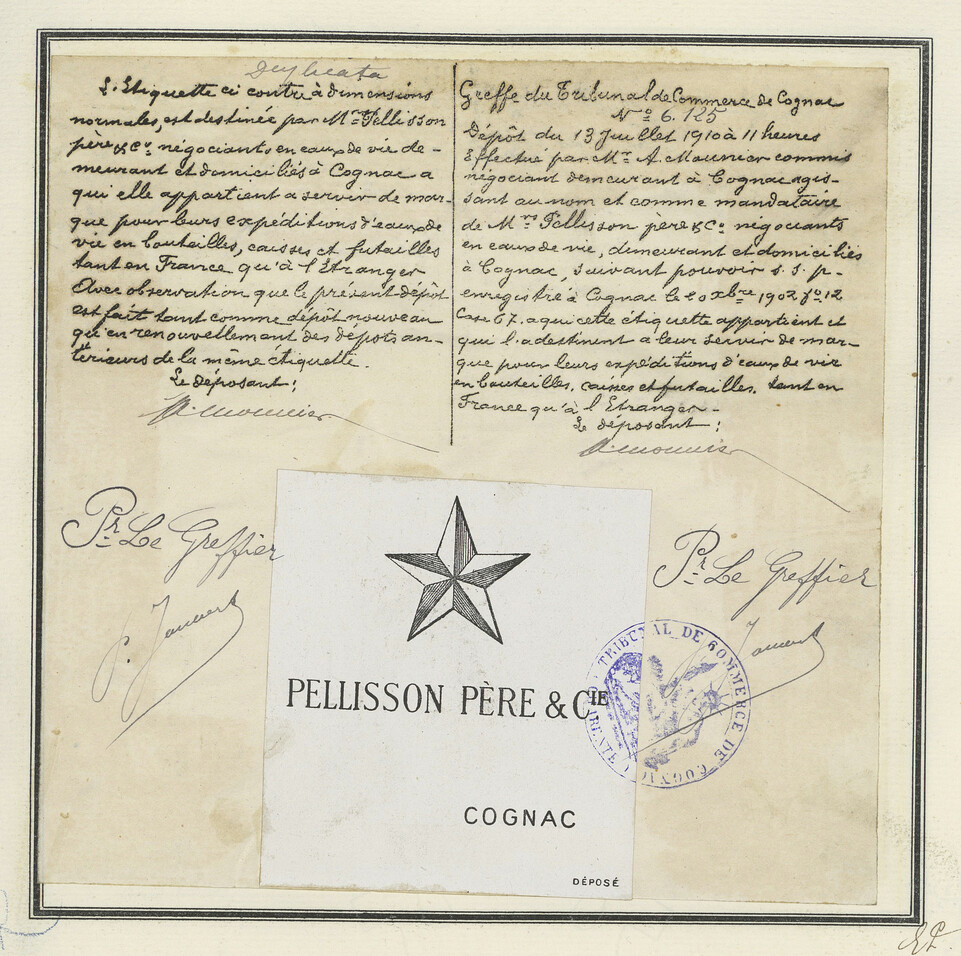 Duplicata
L'Etiquette ci contre à dimensions
normales, est destinée par Mrs Pellisson
père & Co négociants en eaux de vie de-
meurant et domiciliés à Cognac a
qui elle appartient a servir de mar-
que pour leurs expéditions d'eaux de
vie en bouteilles, caisses et futailles
tant en France qu'à l'Etranger
Avec observation que le présent dépôt
est fait tant comme dépôt nouveau
qu'en renouvellement des dépôts an-
térieurs de la même étiquette.
Le déposant:
A. Mounier
Greffe du Tribunal de Commerce de Cognac
No 6.125
Dépôt du 13 Juillet 1910 à 11 heures
Effectué par Mr A. Mounier commis
négociant demeurant à Cognac agis-
sant au nom et comme mandataire
de Mrs Pellisson père & Co négociants
en eaux de vie, demeurant et domiciliés
à Cognac, suivant pouvoir s. s. p-
enregistré à Cognac le 20 Xbre 1902 fo 12
Case 67. a qui cette étiquette appartient et
qui l'adestinent a leur servir de mar-
que pour leurs expéditions d'eaux de vie
en bouteilles, caisses et futailles. tant en
France qu'à l'Etranger-
Le déposant:
A. Mounier
Pr Le Greffier
Pr Le Greffier
PELLISSON PÈRE & CIE
COGNAC
DÉPOSÉ
TRIBUNAL DE COMMERCE DE COGNAC